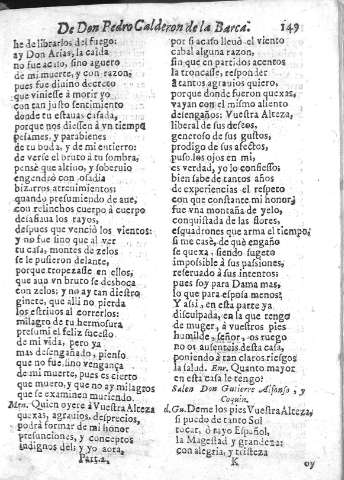 De Don Pedro Calderon de la Barca. 149
he de librarlos del fuego:
ay Don Arias, la caida
no fue acaso, sino aguero
de mi muerte, y con razon,
pues fue diuino decreto
que viniesse à morir yo
con tan justo sentimiento
donde tu estauas casada,
porque nos diessen à vn tiempo
pesames, y parabienes
de tu boda, y de mi entierro:
de verse el bruto à tu sombra,
pensè que altiuo, y soberuio
engendrò con osadia
bizarros atreuimientos;
quando presumiendo de aue,
con relinchos cuerpo à cuerpo
desafiaua los rayos,
despues que venciò los vientos:
y no fue sino que al ver
tu casa, montes de zelos
se le pusieron delante,
porque tropezasse en ellos,
que aun vn bruto se desboca
con zelos; y no ay tan diestro
ginete, que alli no pierda
los estriuos al correrlos:
milagro de tu hermosura
presumi el feliz sucesso
de mi vida, pero ya
mas desengañado, pienso
que no fue sino vengança
de mi muerte, pues es cierto
que muero, y que no ay milagros
que se examinen muriendo.
Men. Quien oyere à Vuestra Alteza
quexas, agrauios, desprecios,
podrà formar de mi honor
presunciones, y conceptos
indignos dèl; y yo aora,
Part.2.
por si acaso lleuò el viento
cabal alguna razon,
sin que en partidos acentos
la troncasse, responder
à tantos agrauios quiero,
porque donde fueron quexas,
vayan con el mismo aliento
desengaños: Vuestra Alteza,
liberal de sus deseos,
generoso de sus gustos,
prodigo de sus afectos,
puso los ojos en mi,
es verdad, yo lo confiesso;
bien sabe de tantos años
de experiencias el respeto
con que constante mi honor
fue vna montaña de yelo,
conquistada de las flores,
esquadrones que arma el tiempo;
si me casè, de què engaño
se quexa, siendo sugeto
impossible à sus passiones,
reseruado à sus intentos:
pues soy para Dama mas,
lo que para esposa menos?
Y assi, en esta parte ya
disculpada, en la que tengo
de muger, à vuestros pies
humilde, señor, os ruego
no os ausenteis desta casa,
poniendo à tan claros riesgos
la salud. Enr. Quanto mayor
en esta casa le tengo?
Salen Don Gutierre Alfonso, y
Coquin.
d. Gu. Deme los pies Vuestra Alteza,
si puedo de tanto Sol
tocar, ò rayo Español,
la Magestad y grandeza:
con alegria, y tristeza
K oy